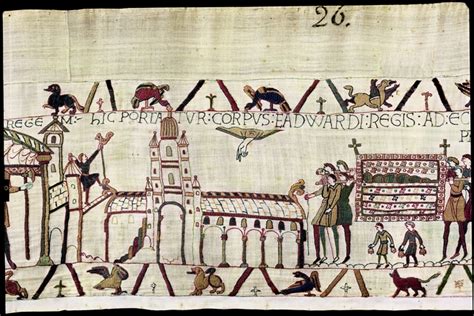 26.
REGEM: hIC PORTATVR: CORPVS: EADWARDI: REGIS: AD: EC